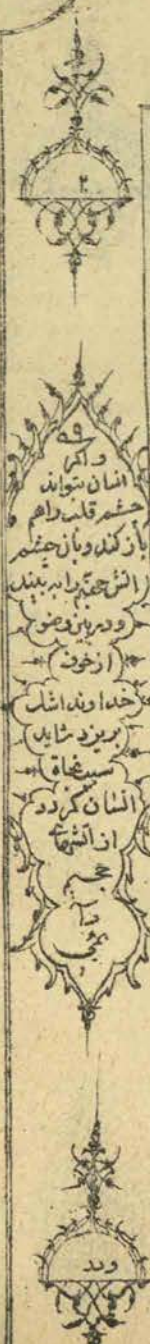 ۲
۵۹
واگر
انسان بتواند
چشم قلب را هم
باز کند و بآن چشم
آتش جهنم را به بیند
و در بین وضو
از خوف
خداوند اشک
بریزد شاید
سبب نجاة
انسان گردد
از آتشهای
وند